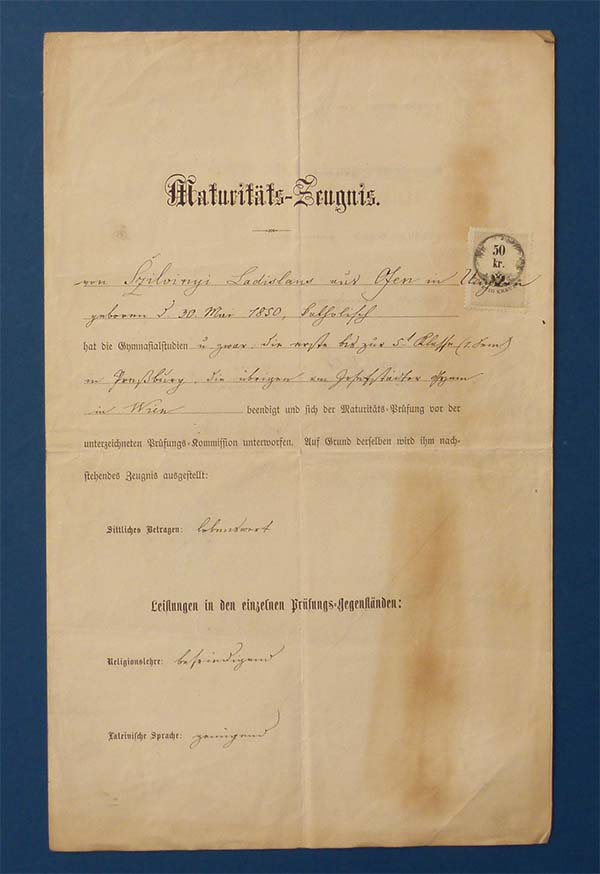 Maturitäts-Zeugnis.
50
kr.
von Szilvinyi Ladislaus aus Ofen in Ungarn
geboren d. 30. Mai 1850, katholisch
hat die Gymnasialstudien u. zwar die erste bis zur 5t Klasse (1. Sem)
in Preßburg, die übrigen am Josefstädter Gymn
in Wien beendigt und sich der Maturitäts-Prüfung vor der
unterzeichneten Prüfungs-Kommission unterworfen. Auf Grund derselben wird ihm nach-
stehendes Zeugnis ausgestellt:
Sittliches Betragen: lobenswert
Leistungen in den einzelnen Prüfungs-Gegenständen:
Religionslehre: befriedigend
Lateinische Sprache: genügend